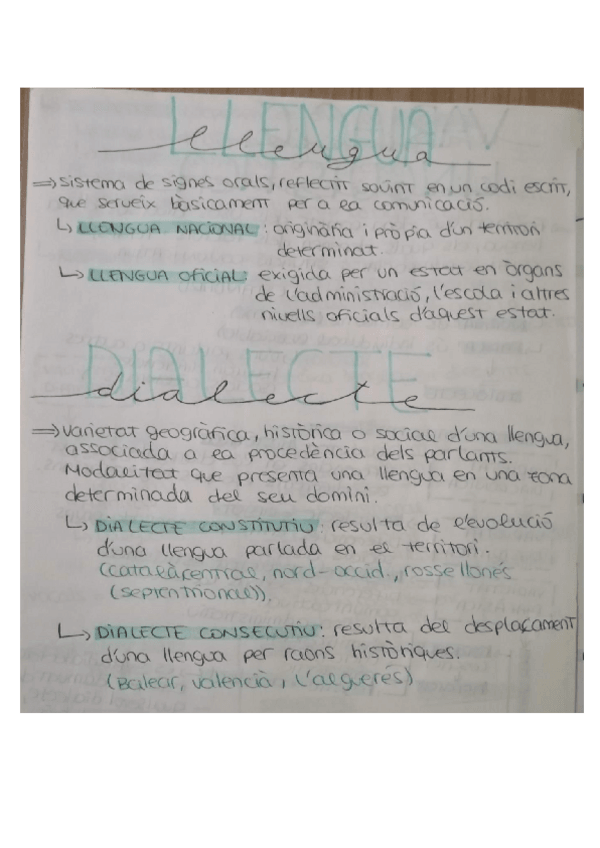 LLENGUA
llengua
⇒ sistema de signes orals, reflectit sovint en un codi escrit,
que serveix bàsicament per a la comunicació.
↳ LLENGUA NACIONAL: originària i pròpia d'un territori
determinat.
↳ LLENGUA OFICIAL: exigida per un estat en òrgans
de l'administració, l'escola i altres
nivells oficials d'aquest estat.
DIALECTE
dialecte
⇒ varietat geogràfica, històrica o social d'una llengua,
associada a la procedència dels parlants.
Modalitat que presenta una llengua en una zona
determinada del seu domini.
↳ DIALECTE CONSTITUTIU: resulta de l'evolució
d'una llengua parlada en el territori.
(català central, nord-occid., rossellonés
(septentrional)).
↳ DIALECTE CONSECUTIU: resulta del desplaçament
d'una llengua per raons històriques.
(Balear, valencià, l'alguerés)